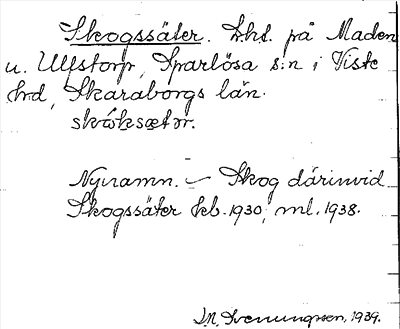 Skogssäter. Lht. på Maden
u. Ulfstorp, Sparlösa s:n i Viste
hrd, Skaraborgs län.
skóksætər.
Nyramn. – Skog därinvid
Skogssäter kb. 1930, ml. 1938.
J.N. Svenungsson, 1939.